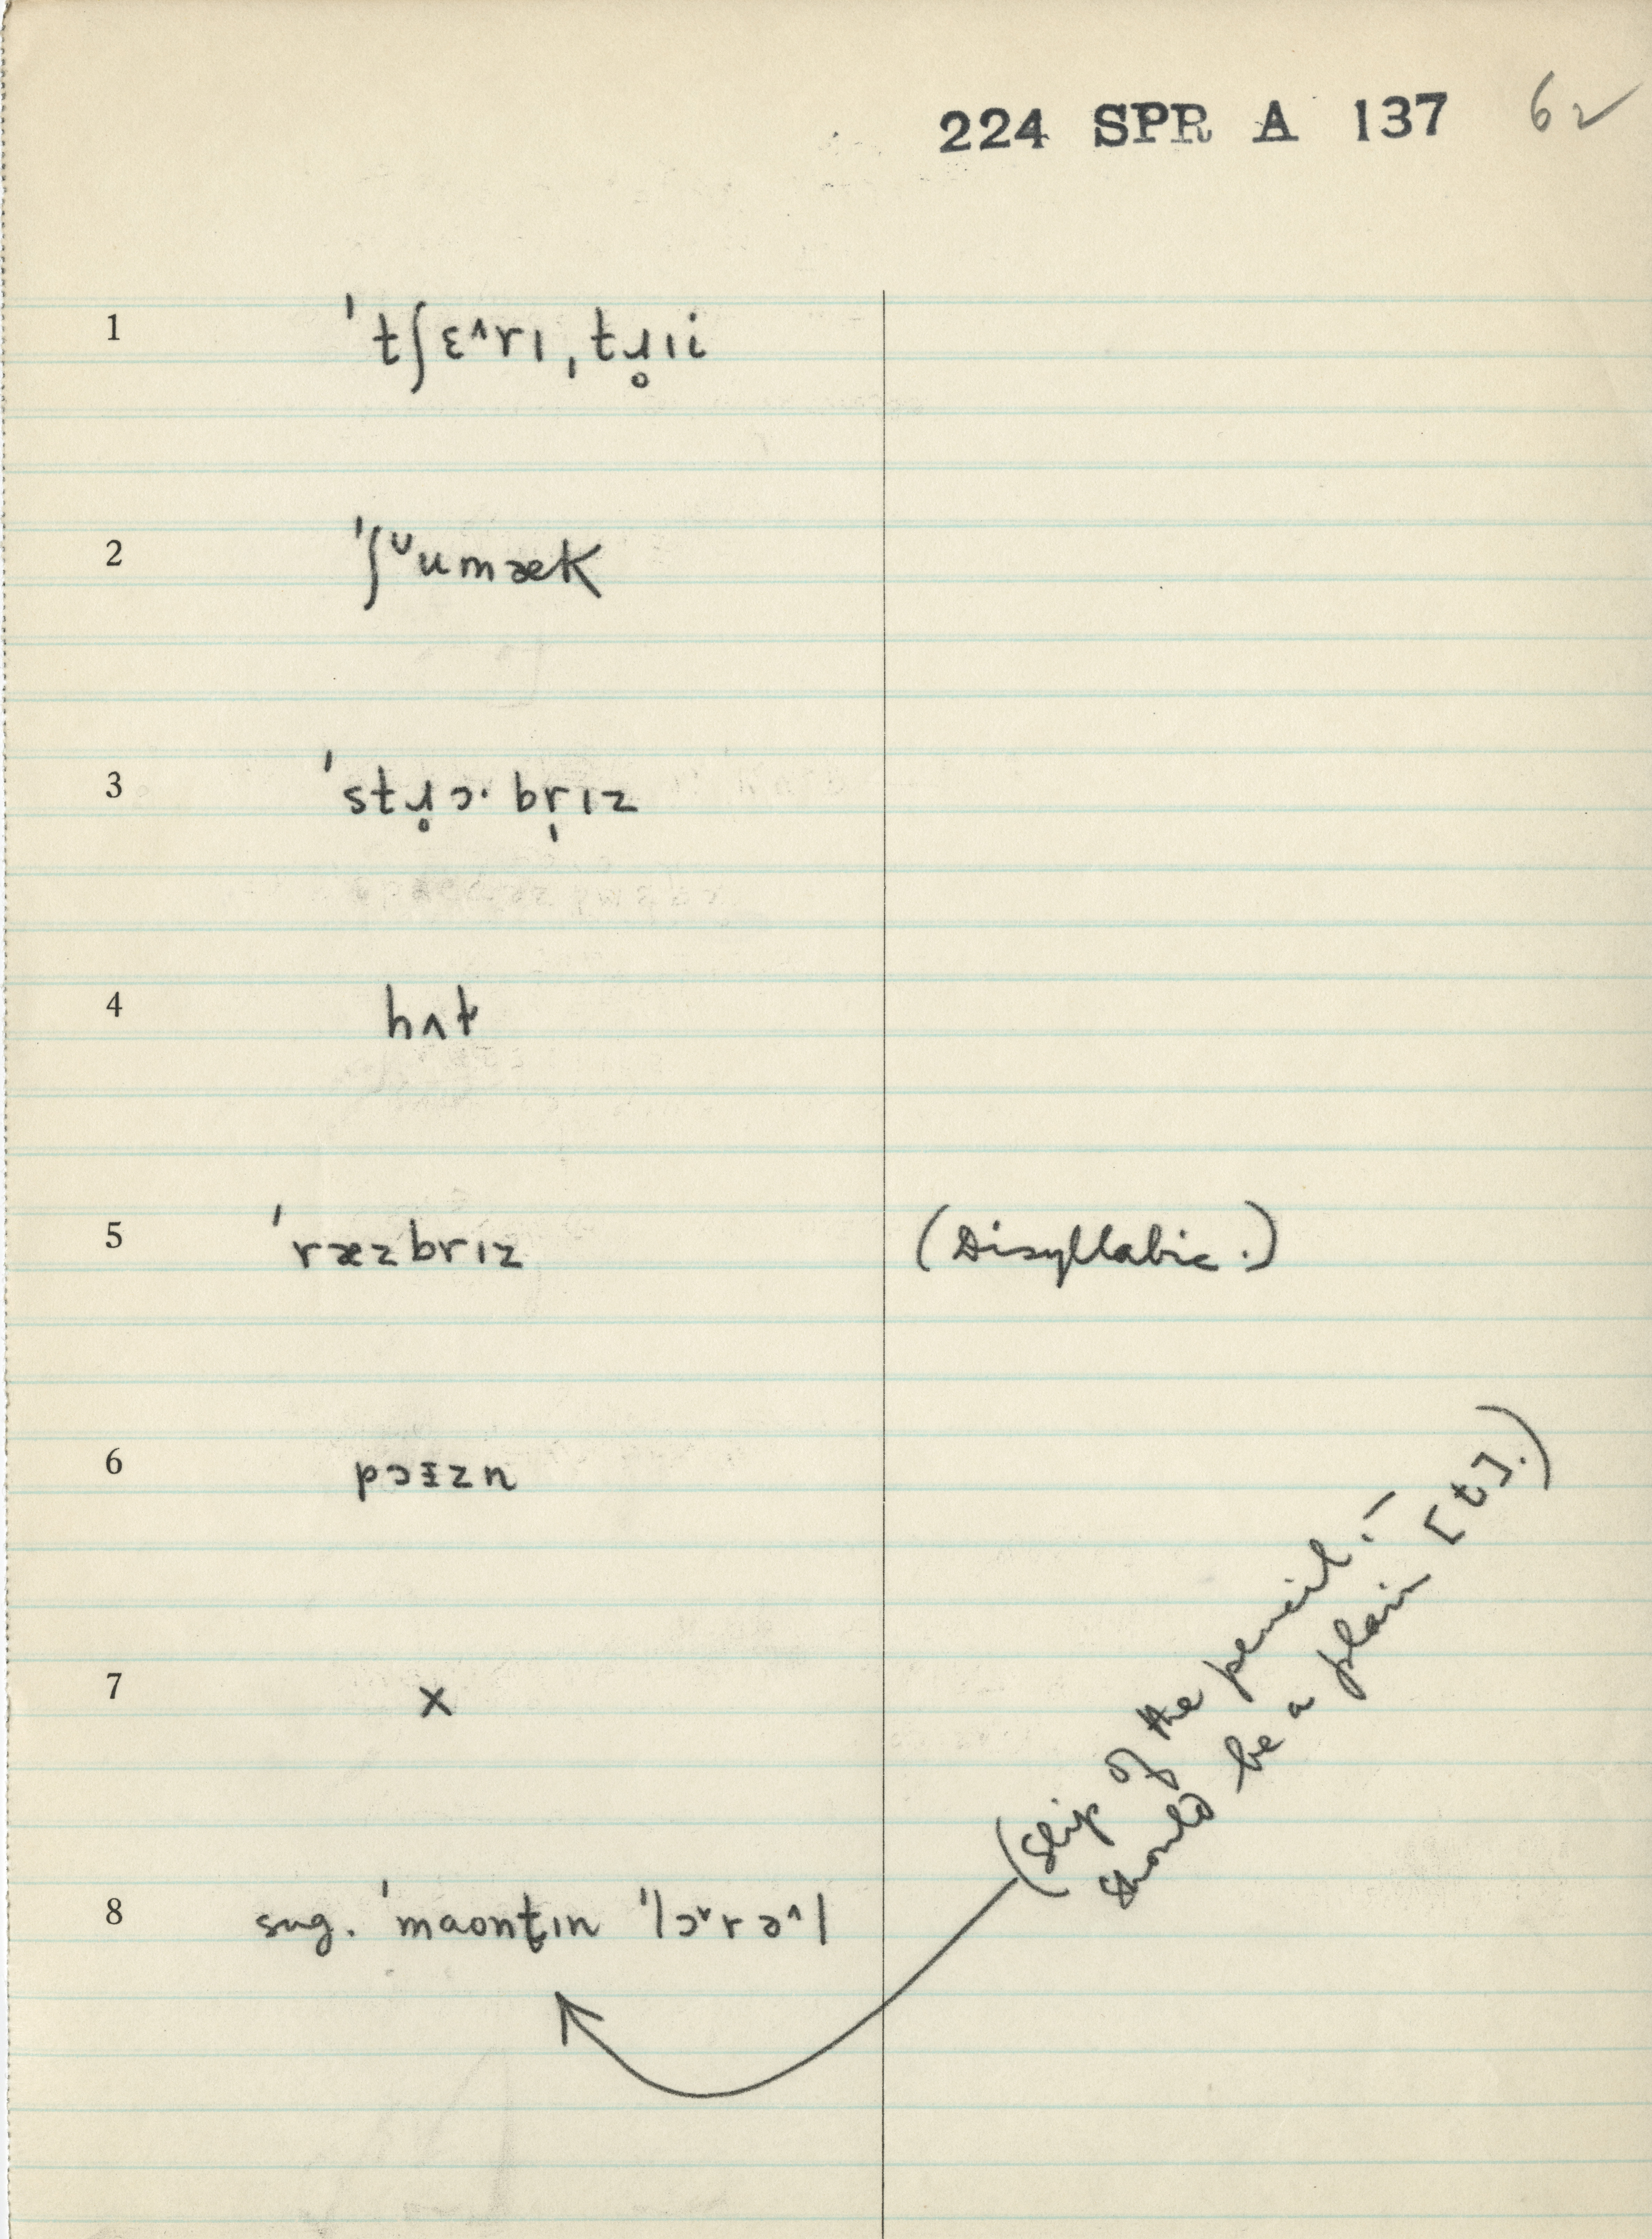 224 SPR A 137 62 ✓
1 ˈtʃɛ^rɪˌtɹ̥ɪi
2 ˈʃᵕumæk
3 ˈstɹ̥ɔ·br̩ɪz
4 hʌt
5 ˈræzbrɪz (Disyllabic.)
6 pɔɪzn
7 x
8 sug. ˈmaont̬ɪn ˈlɔ˅rə^l
(Slip of the pencil.—
Should be a plain [t].)